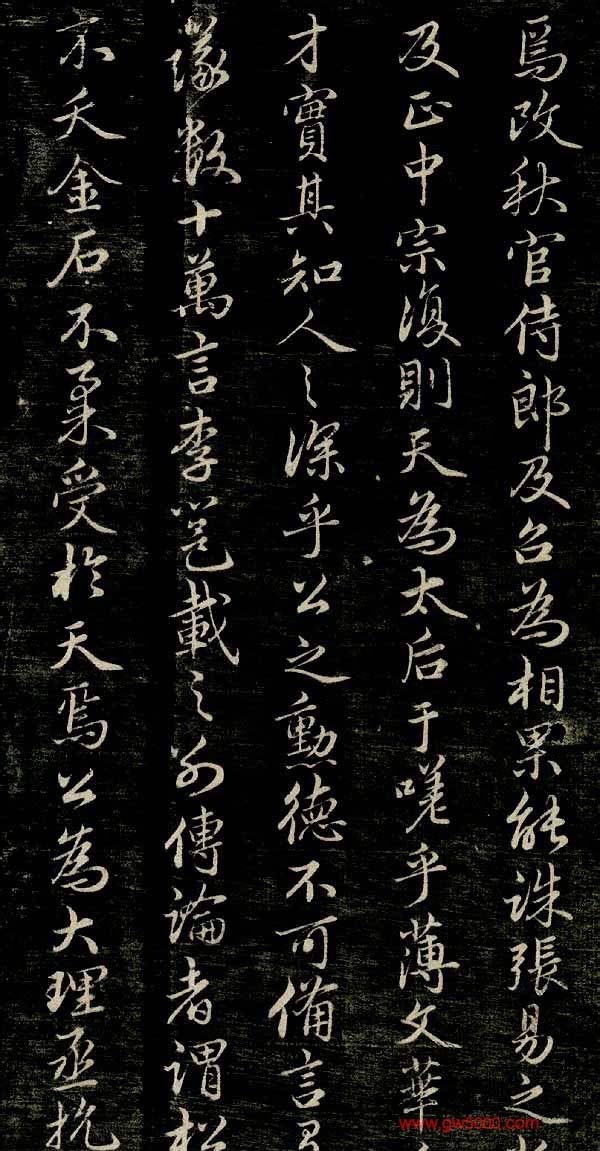 焉改秋官侍郎及召為相果能誅張易之
反正中宗復則天為太后于嗟乎薄文華
才實其知人之深乎公之勳德不可備言
數十萬言李邕載之別傳論者謂松
不夭金石不柔受於天焉公為大理丞抗
www.gw5000.com